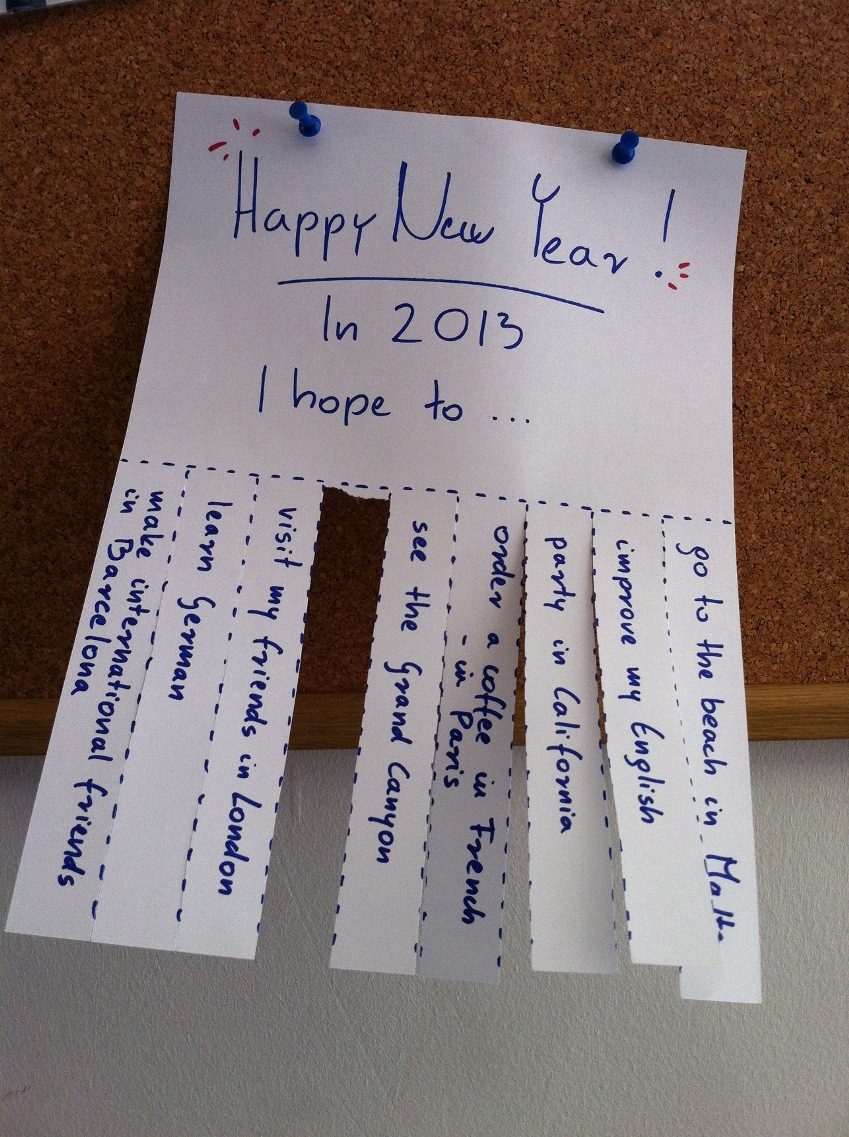 Happy New Year!
In 2013
I hope to ...
make international friends
in Barcelona
learn German
visit my friends in London
see the Grand Canyon
order a coffee in French
- in Paris
party in California
improve my English
go to the beach in Malta